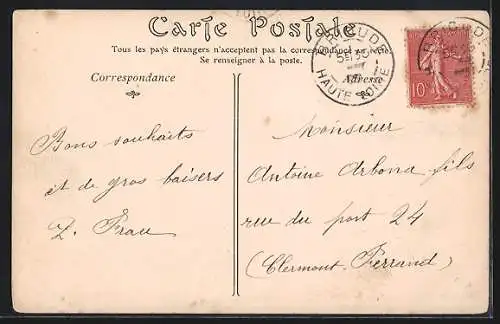 Carte Postale
Tous les pays étrangers n'acceptent pas la correspondance au recto.
Se renseigner à la poste.
Correspondance
Adresse
BRIOUDE
HAUTE LOIRE
10
Bons souhaits
et de gros baisers
Monsieur
Antoine Arbona fils
rue du port 24
(Clermont-Ferrand)